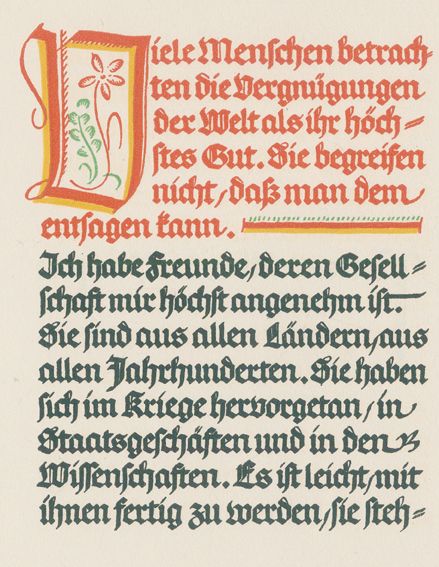 Viele Menschen betrach-
ten die Vergnügungen
der Welt als ihr höch=
stes Gut. Sie begreifen
nicht, daß man dem
entsagen kann.
Ich habe Freunde, deren Gesell=
schaft mir höchst angenehm ist.
Sie sind aus allen Ländern, aus
allen Jahrhunderten. Sie haben
sich im Kriege hervorgetan, in
Staatsgeschäften und in den
Wissenschaften. Es ist leicht, mit
ihnen fertig zu werden, sie steh=